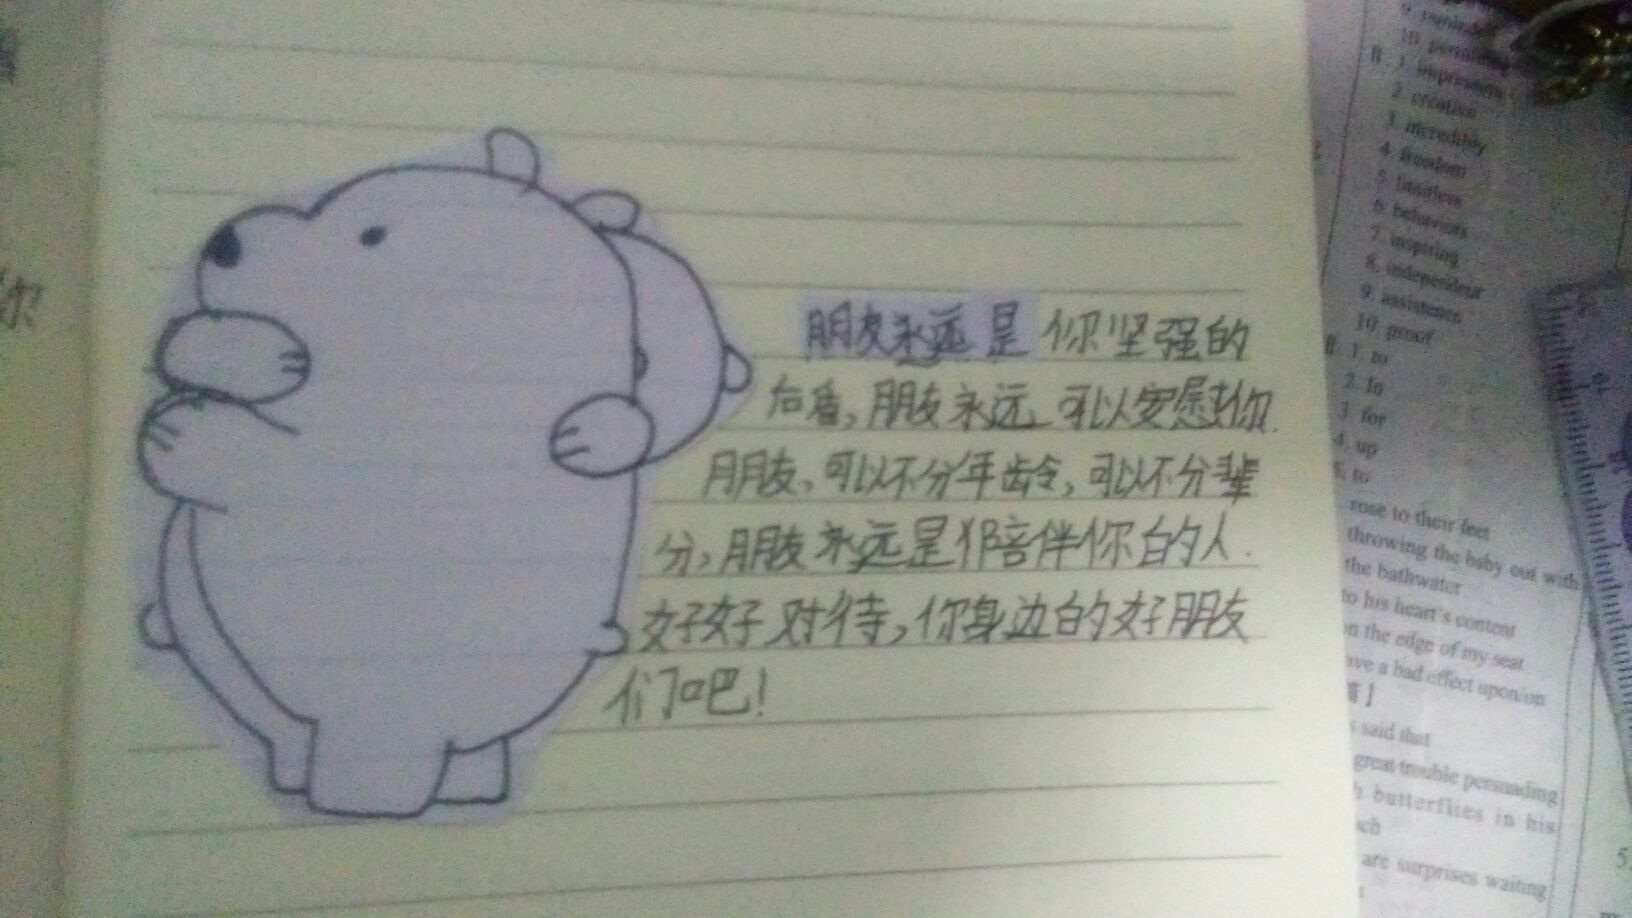 你
朋友永远是你坚强的
后盾，朋友永远可以安慰你.
朋友，可以不分年龄，可以不分辈
分，朋友永远是那陪伴你的人.
好好对待，你身边的好朋友
们吧！
10.
II. 1. impressive
2. creative
3. incredibly
4. freedom
5. limitless
6. behaviors
7. inspiring
8. independent
9. insistence
10. proof
1. to
2. In
3. for
4. up
5. to
rose to their feet
throwing the baby out with
the bathwater
to his heart's content
on the edge of my seat
have a bad effect upon/on
said that
great trouble persuading
butterflies in his
are surprises waiting